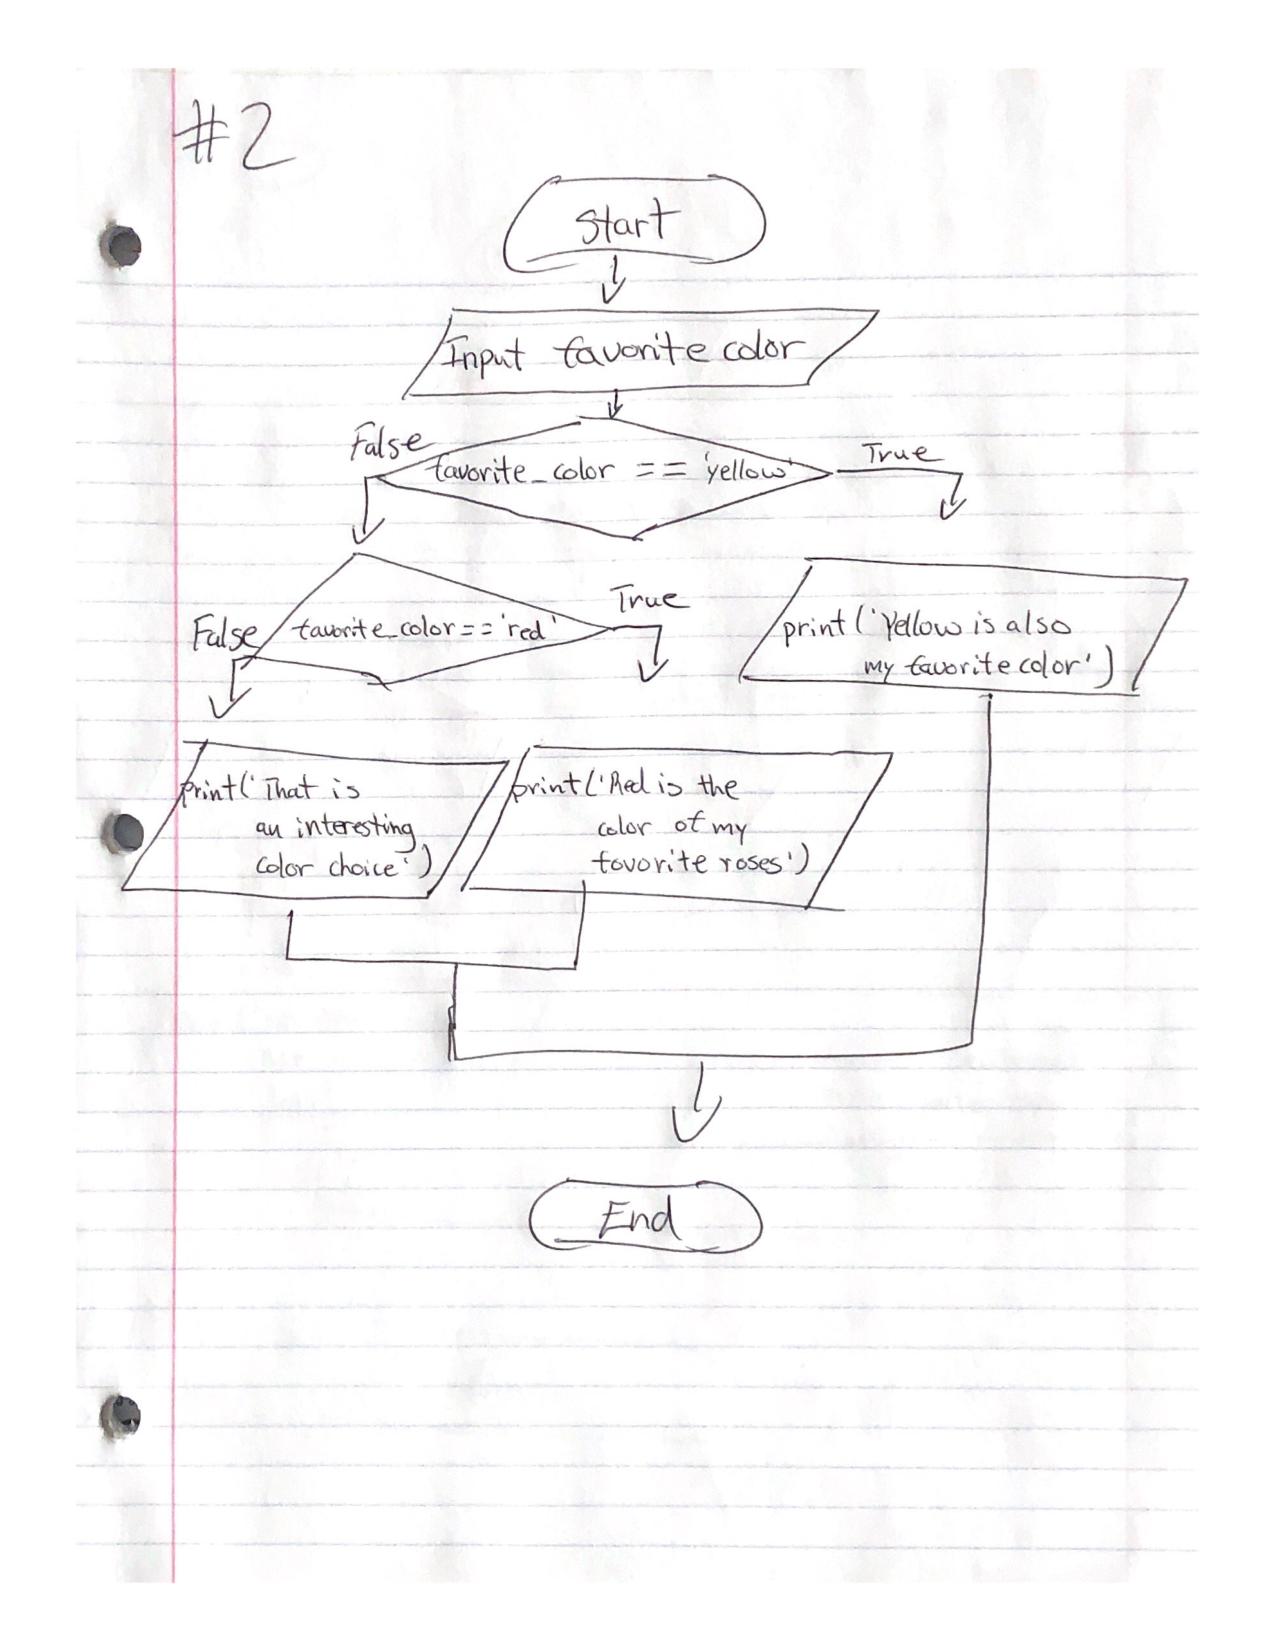 #2
Start
Input favorite color
False
True
favorite_color == 'yellow'
True
False
favorite_color == 'red'
print('Yellow is also
my favorite color')
print('That is
an interesting
color choice')
print('Red is the
color of my
favorite roses')
End